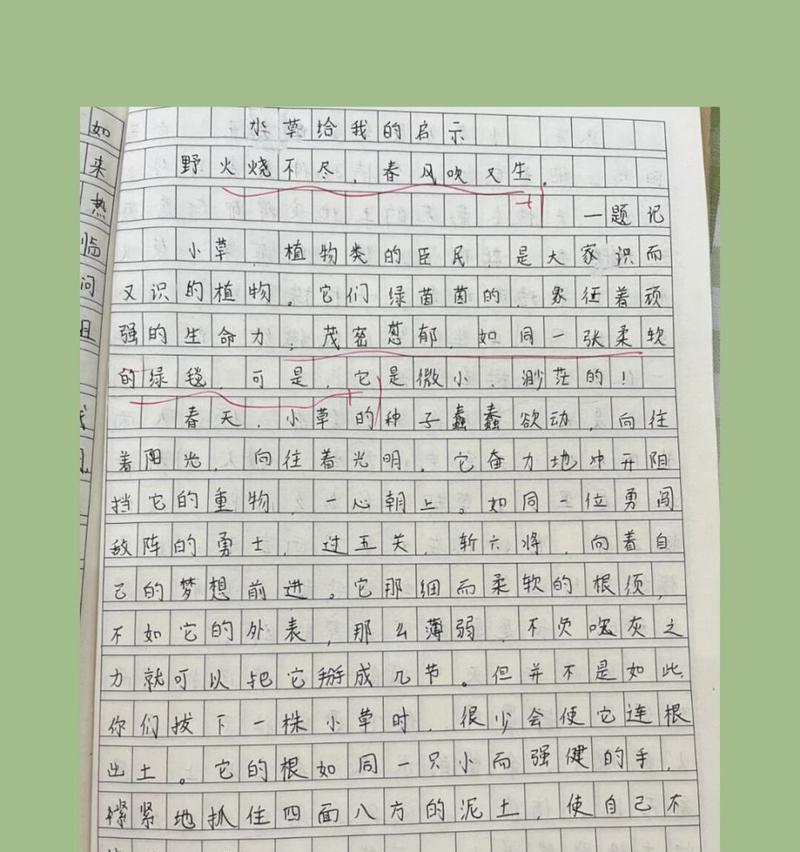 如
来
热
临
问
且
水草给我的启示
野火烧不尽，春风吹又生．
—题记
小草，植物类的臣民，是大家识而
又识的植物。它们绿茵茵的，象征着顽
强的生命力，茂密葱郁，如同一张柔软
的绿毯，可是，它是微小、渺茫的！
春天，小草的种子蠢蠢欲动，向往
着阳光，向往着光明，它奋力地冲开阻
挡它的重物，一心朝上。如同一位勇闯
敌阵的勇士，过五关，斩六将，向着自
己的梦想前进。它那细而柔软的根须，
不如它的外表，那么薄弱，不费吹灰之
力就可以把它掰成几节。但并不是如此，
你们拔下一株小草时，很少会使它连根
出土。它的根如同一只小而强健的手，
紧地抓住四面八方的泥土，使自己不